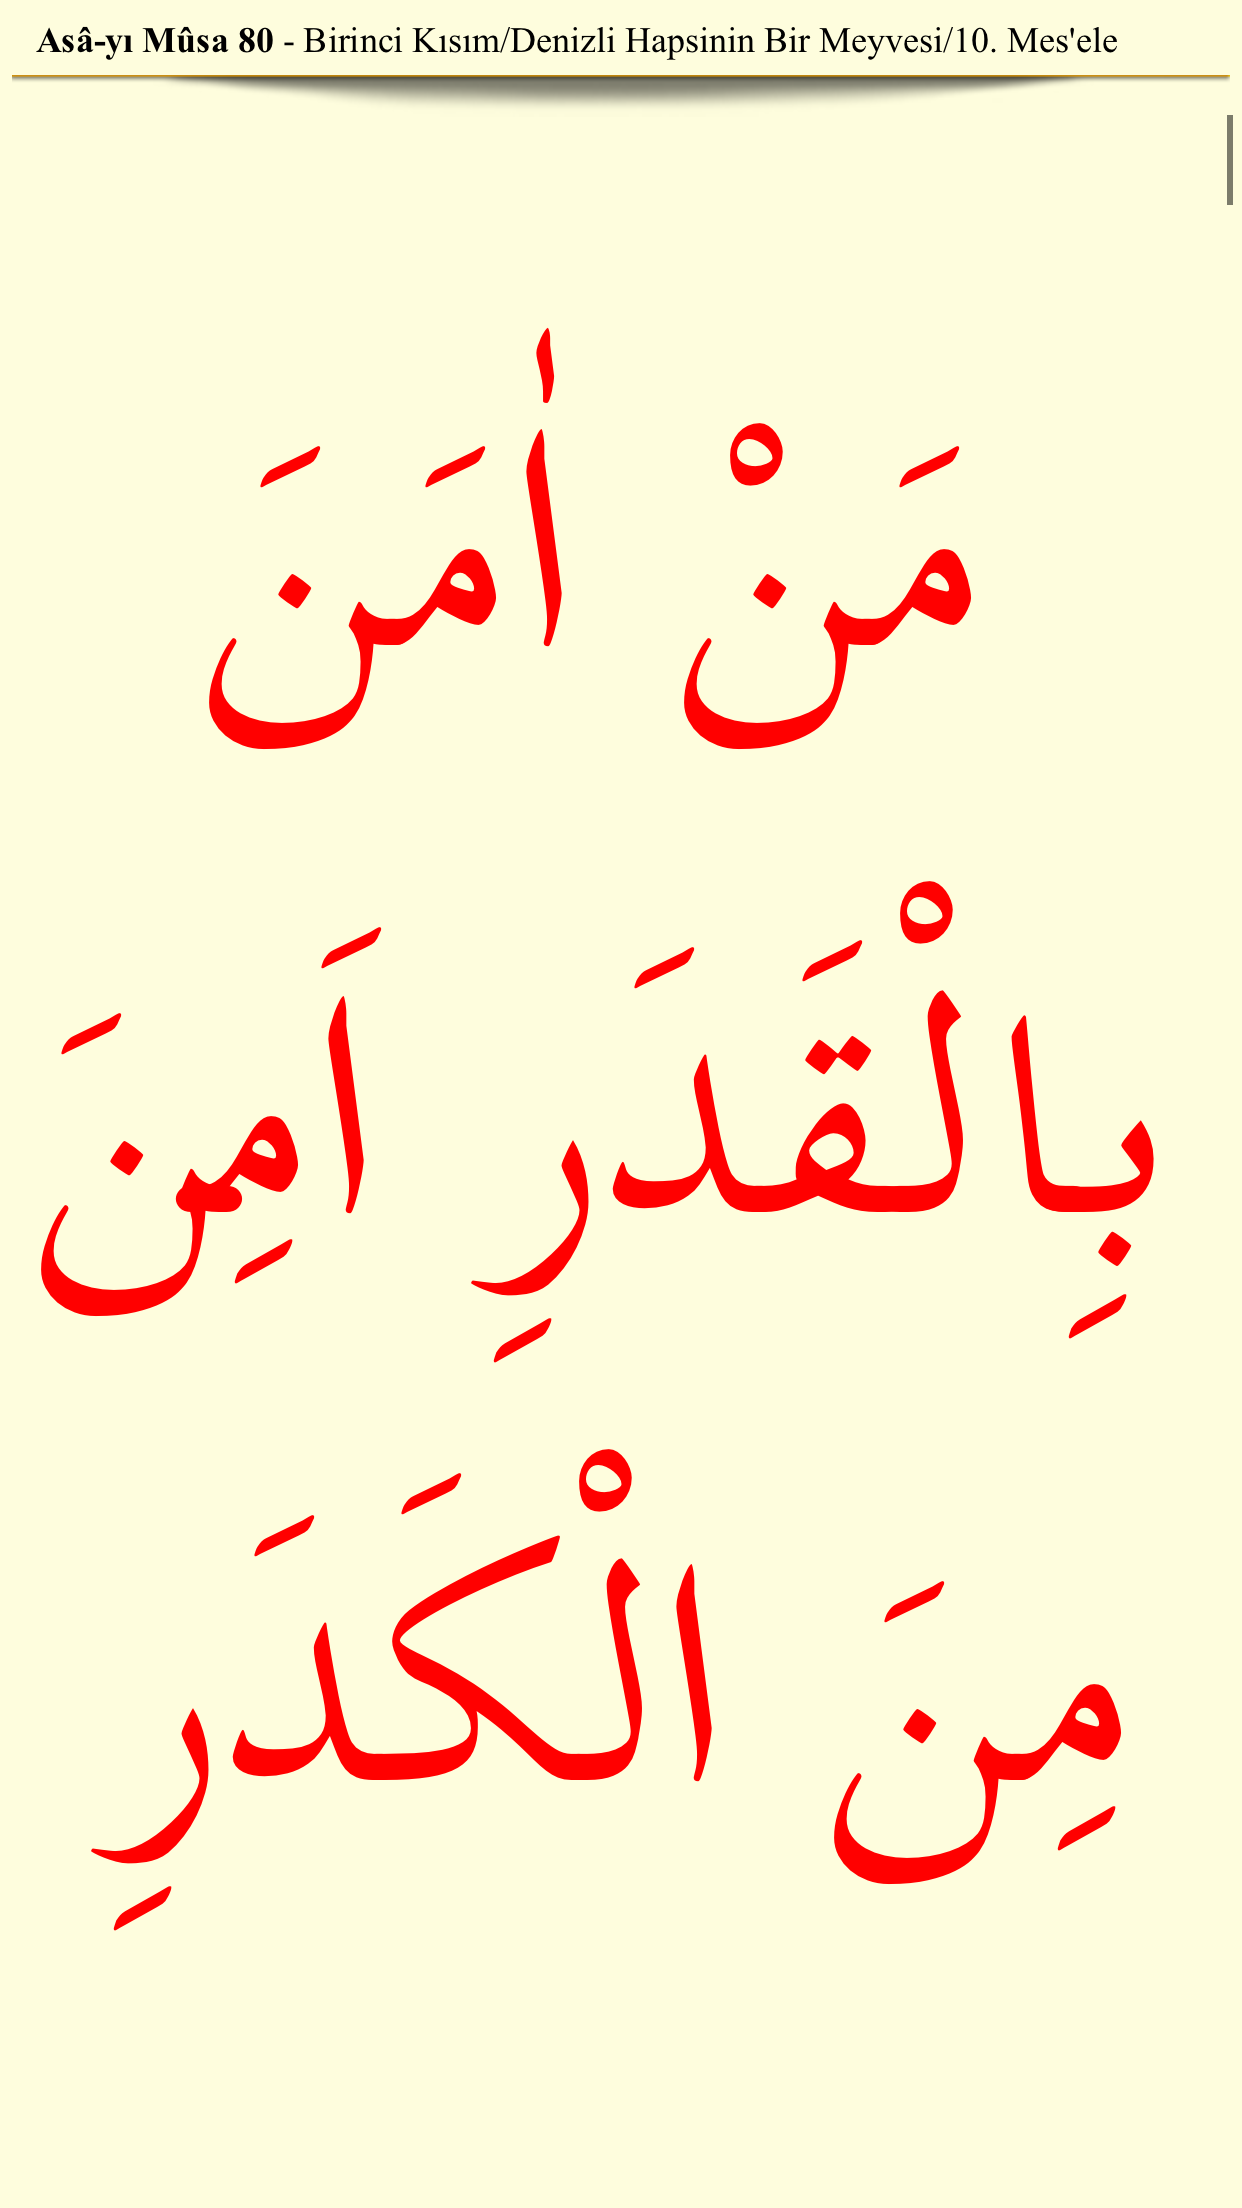 Asâ-yı Mûsa 80 - Birinci Kısım/Denizli Hapsinin Bir Meyvesi/10. Mes'ele
مَنْ اٰمَنَ
بِالْقَدَرِ اَمِنَ
مِنَ الْكَدَرِ